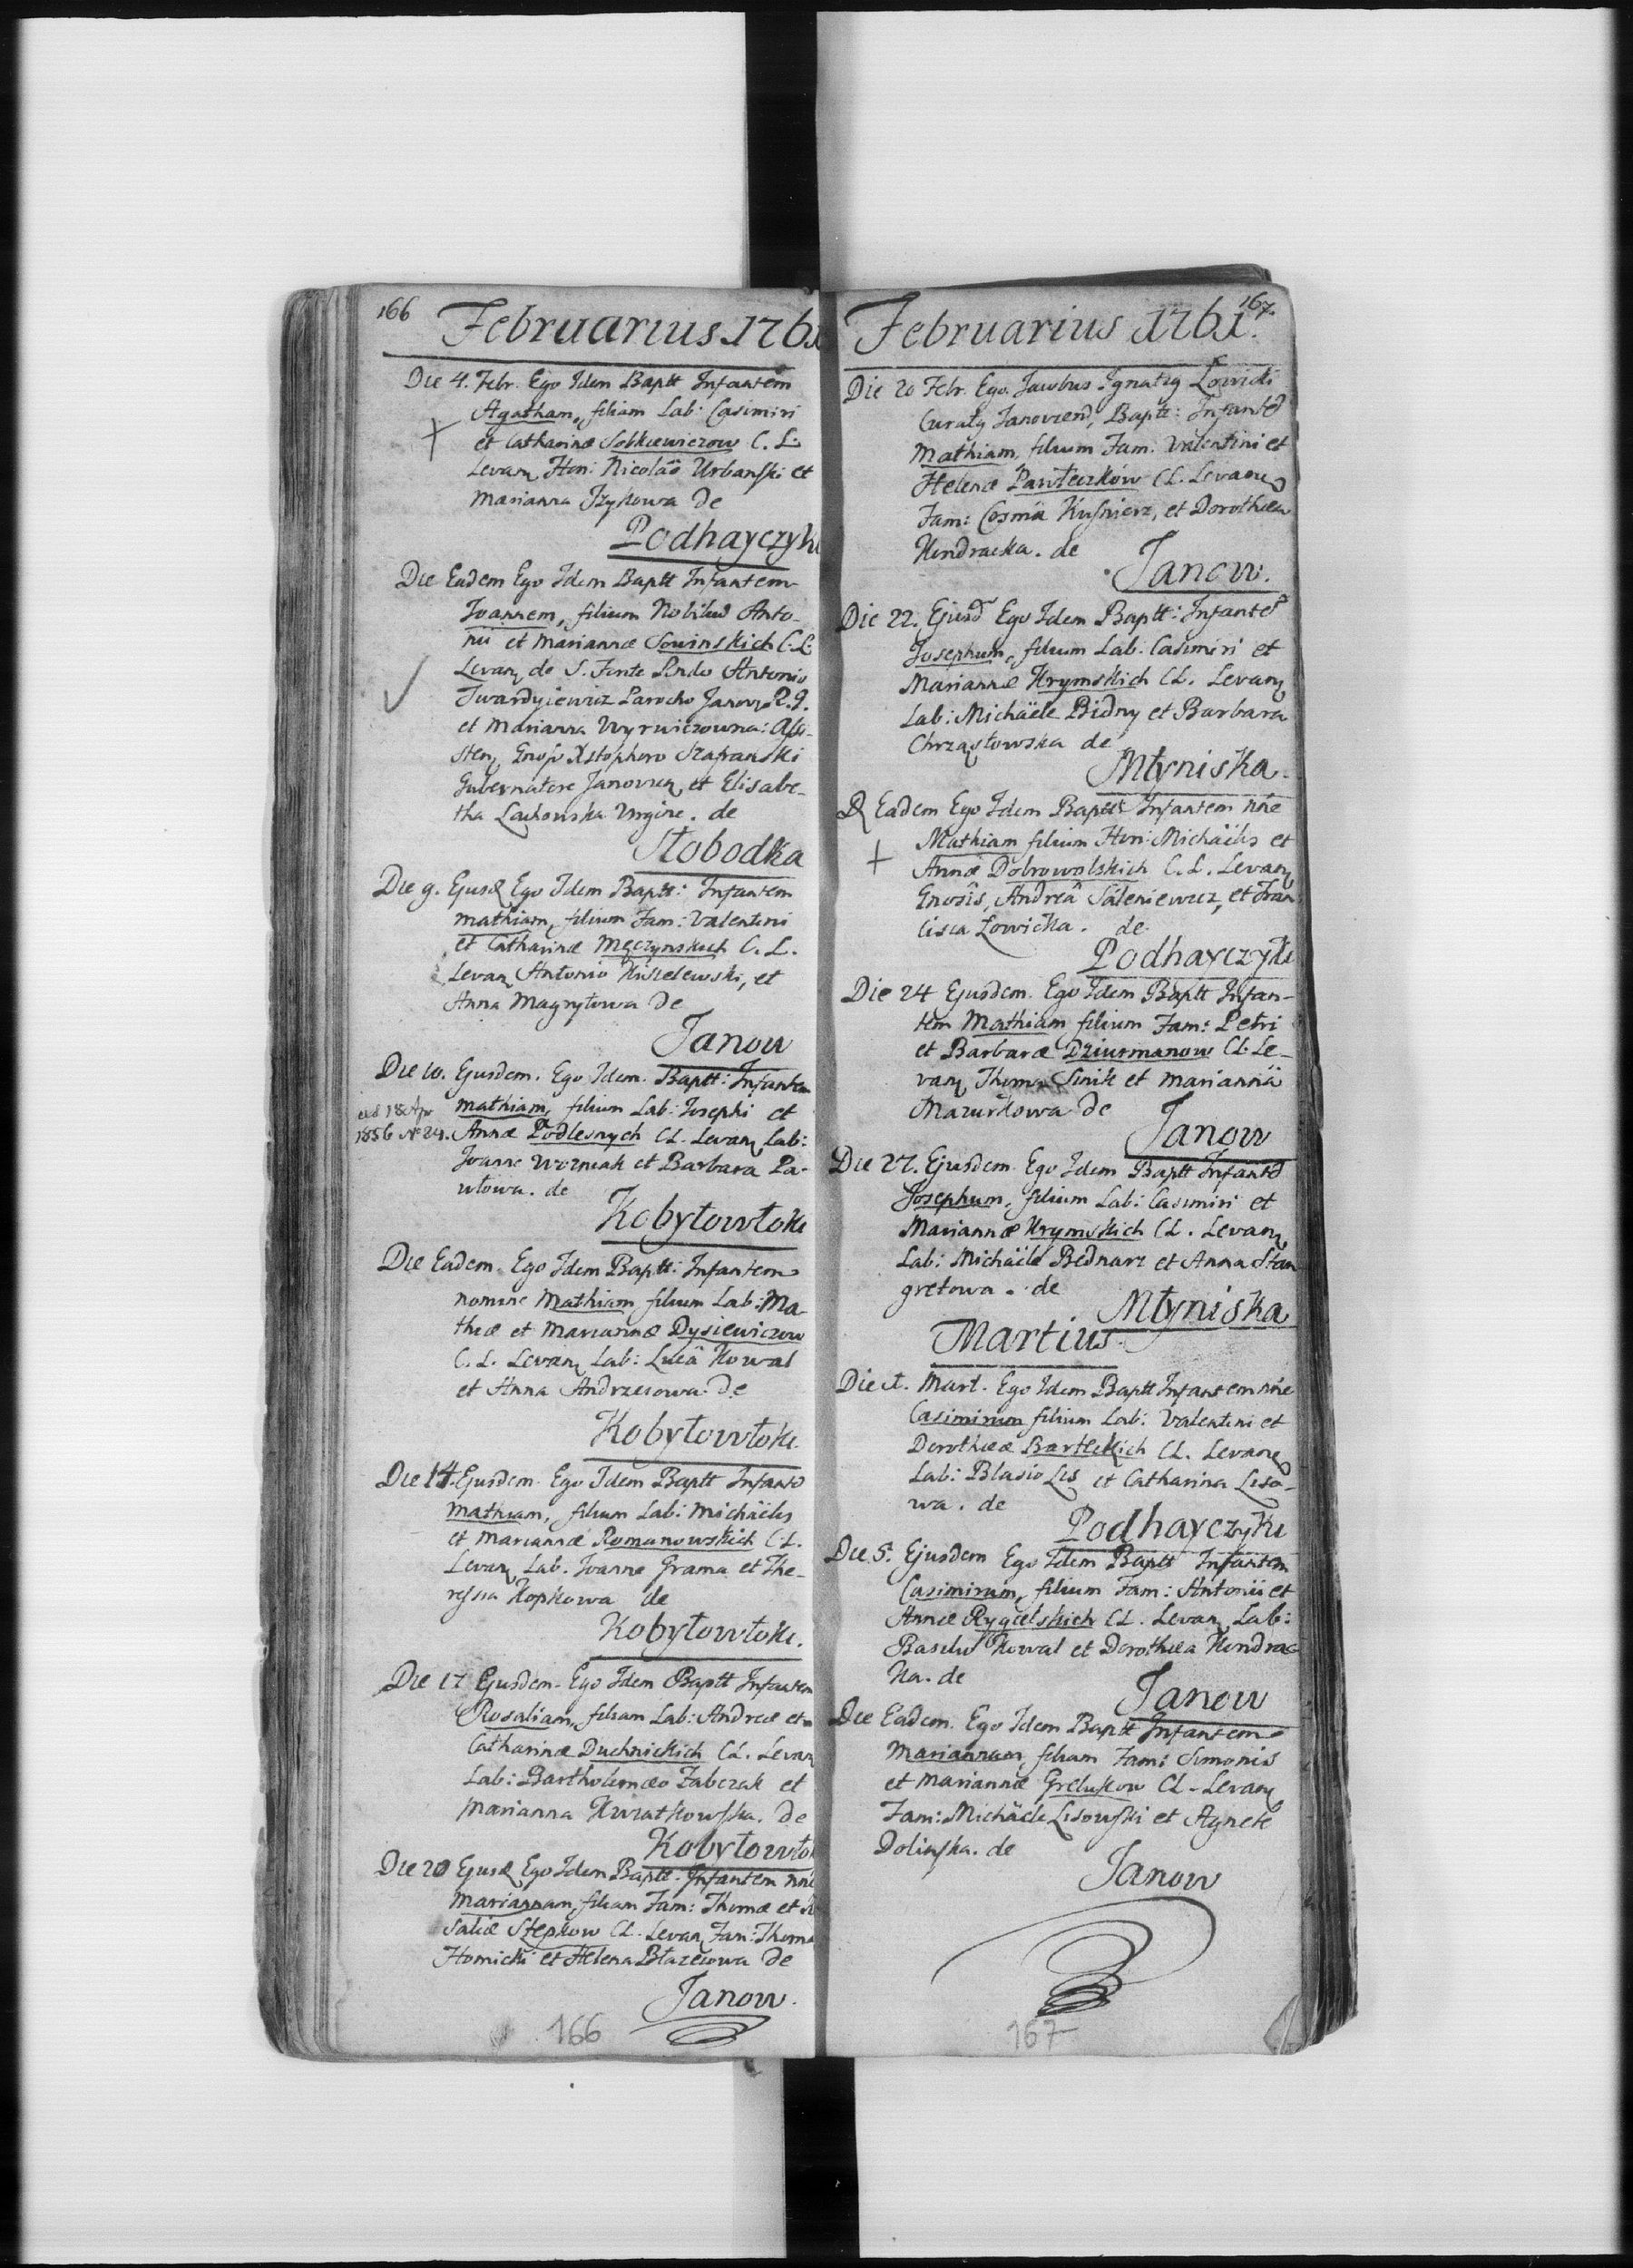 166
Februarius 1761
Die 4. Febr. Ego Idem Baptt Infantem
Agatham, filiam Lab: Casimiri
et Catharinæ Sobkiewiczow C. L.
Levan Hon: Nicolao Urbanski et
Marianna Izykowa de
Podhayczyki
Die Eadem Ego Idem Baptt Infantem
Joannem, filium Nobiliu Anto-
nii et Mariannæ Sowinskich C. L.
Levan de S. Fonte Antonio
Twardyiewicz Parocho Janov
et Marianna Wyrwiczowna: Assi-
sten Xstophoro Szafranski
Gubernatore Janovien et Elisabe-
tha Lachowska Virgine. de
Słobodka
Die 9. Ejusd Ego Idem Baptt: Infantem
Mathiam, filium Fam: Valentini
et Catharinæ Męczynskich C. L.
Levan Antonio Kisielewski, et
Anna Magnytowa de
Janow
Die 10. Ejusdem. Ego Idem. Baptt: Infantem
Mathiam, filium Lab: Josephi et
1856 No 24. Annæ Podlesnych CL. Levan Lab:
Joanne Wozniak et Barbara Pa-
włowa. de
Kobyłowłoki
Die Eadem. Ego Idem Baptt: Infantem
nomine Mathiam filium Lab: Ma-
thiæ et Mariannæ Dysiewiczow
C. L. Levan Lab: Lucâ Kowal
et Anna Andrzeiowa de
Kobyłowłoki.
Die 14 Ejusdem Ego Idem Baptt Infant
Mathiam, filium Lab: Michäelis
et Mariannæ Romanowskich C. L.
Levan Lab. Joanne Grama et The-
ressia Kopkowa de
Kobyłowłoki.
Die 17 Ejusdem. Ego Idem Baptt Infantem
Rosaliam, filiam Lab: Andreæ et
Catharinæ Duchnickich CL. Levan
Lab: Bartholomæo Zabczak et
Marianna Kwiatkowska. de
Kobyłowło
Die 20 Ejusd Ego Idem Baptt. Infantem nne
Mariannam, filiam Fam: Thomæ et Ro
saliæ Stepkow CL. Levan Fam: Thoma
Homicki et Helena Błazeiowa de
Janow.
166
167.
Februarius 1761.
Die 20 Febr. Ego Jacobus Ignaty Łowicki
Curaty Janovien, Baptt: Infant
Mathiam, filium Fam. Valentini et
Helenæ Pawłeczkow CL. Levan
Fam: Cosmä Kusnierz, et Dorothea
Kendracka. de
Janow.
Die 22. Ejusd Ego Idem Baptt: Infant
Josephum, filium Lab. Casimiri et
Mariannæ Krymskich CL. Levan
Lab: Michäele Bidny et Barbara
Chrząstowska de
Młyniska.
D Eadem Ego Idem Baptt Infantem nne
Mathiam filium Hon: Michäelis et
Annæ Dobrowolskich C. L. Levan
Gnosis, Andreâ Saleniewicz, et Fran
cisca Łowicka. de
Podhayczyki
Die 24 Ejusdem. Ego Idem Baptt Infan-
tem Mathiam filium Fam: Petri
et Barbaræ Dziurmanow CL. Le-
van Thoma Sinik et Mariannä
Mazurkowa de
Janow
Die 27. Ejusdem. Ego Idem Baptt Infant
Josephum, filium Lab: Casimiri et
Mariannæ Krymskich CL. Levan
Lab: Michäele Bednarz et Anna Stan
gretowa. de
Młyniska
Martius
Die 1. Mart. Ego Idem Baptt Infantem nne
Casimirum filium Lab: Valentini et
Dorotheæ Bartleckich CL. Levan
Lab: Blasio Lis et Catharina Liso-
wa. de
Podhayczyki
Die 5. Ejusdem Ego Idem Baptt Infantem
Casimirum, filium Fam: Antonii et
Annæ Rygielskich CL. Levan Lab:
Basilio Kowal et Dorothea Kendrac
ka. de
Janow
Die Eadem. Ego Idem Baptt Infantem
Mariannam, filiam Fam: Simonis
et Mariannæ Greluskow CL. Levan
Fam: Michäele Lisowski et Agnete
Dolinska. de
Janow
167